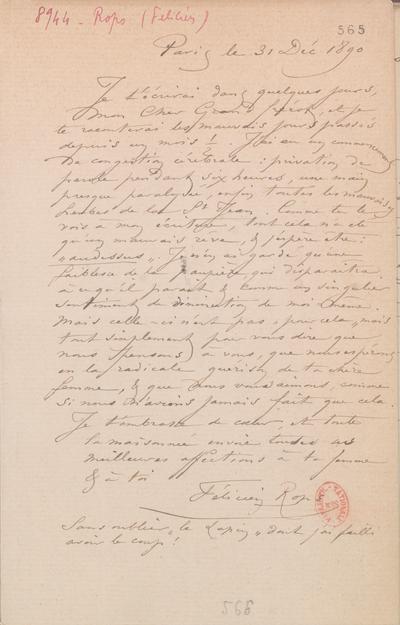 8944 - Rops (Félicien)
565
Paris le 31 Déc 1890
Je t'écrirai dans quelques jours,
mon Cher Grand, et je
te raconterai les mauvais jours passés
depuis un mois ½. J'ai eu un commencement
de congestion cérébrale : privation de
parole pendant six heures, une main
presque paralysée, enfin toutes les mauvaises
herbes de la St Jean. Comme tu le
vois à mon écriture, tout cela n'a été
qu'un mauvais rêve, & j'espère être
„au dessus". Je n'en ai gardé qu'une
faiblesse de la paupière qui disparaitra
à ce qu'il parait & comme un singulier
sentiment de diminution de moi-même.
Mais celle-ci n'est pas pour cela, mais
tout simplement pour vous dire que
nous pensons à vous, que nous espérons
en la radicale guérison de ta chère
femme, & que nous vous aimons, comme
si nous n'avions jamais fait que cela.
Je t'embrasse de coeur, et toute
la maisonnée envoie toutes ses
meilleures affections à ta femme
& à toi
Félicien Rops
Sans oublier „le Lapin" dont j'ai failli
avoir le coup!
568